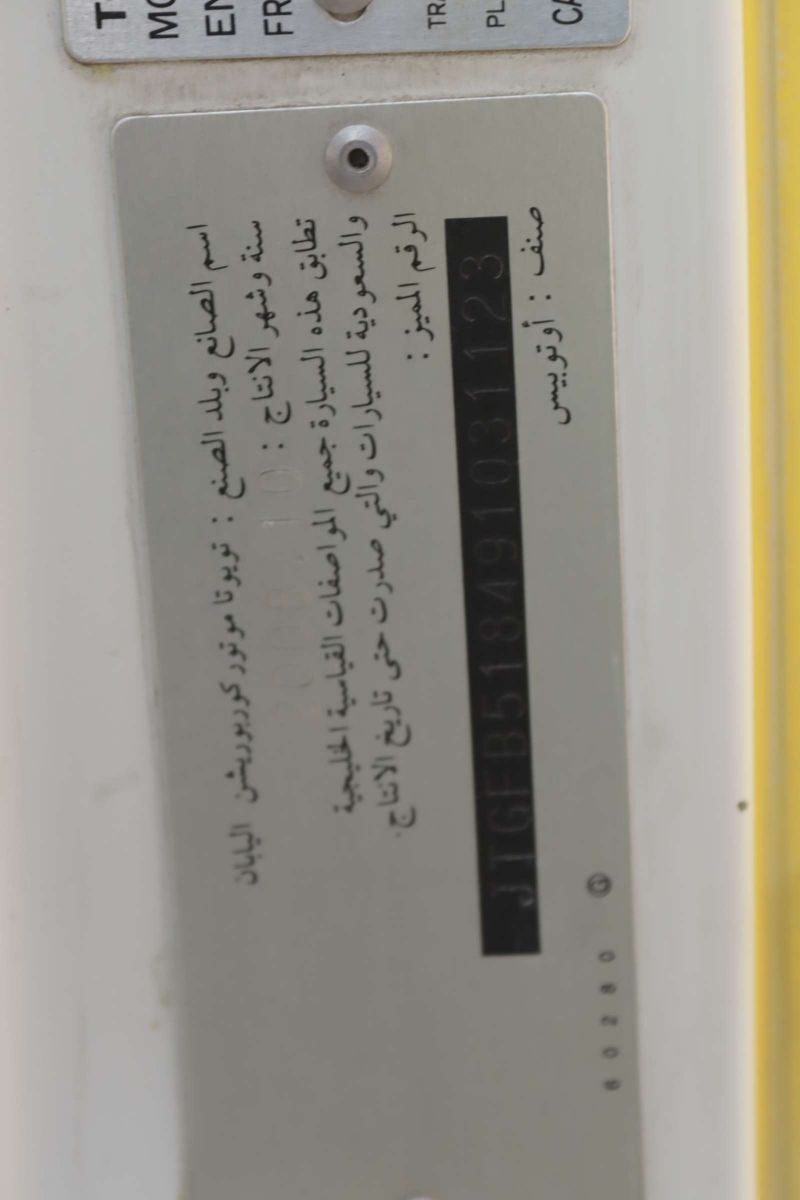 T
MO
EN
FR
TRA
PL
CA
اسم الصانع وبلد الصنع : تويوتا موتور كوربوريشن اليابان
سنة وشهر الانتاج :
تطابق هذه السيارة جميع المواصفات القياسية الخليجية
والسعودية للسيارات والتي صدرت حتى تاريخ الانتاج.
الرقم المميز :
JTGFB518491031123
صنف : أوتوبيس
60280 G